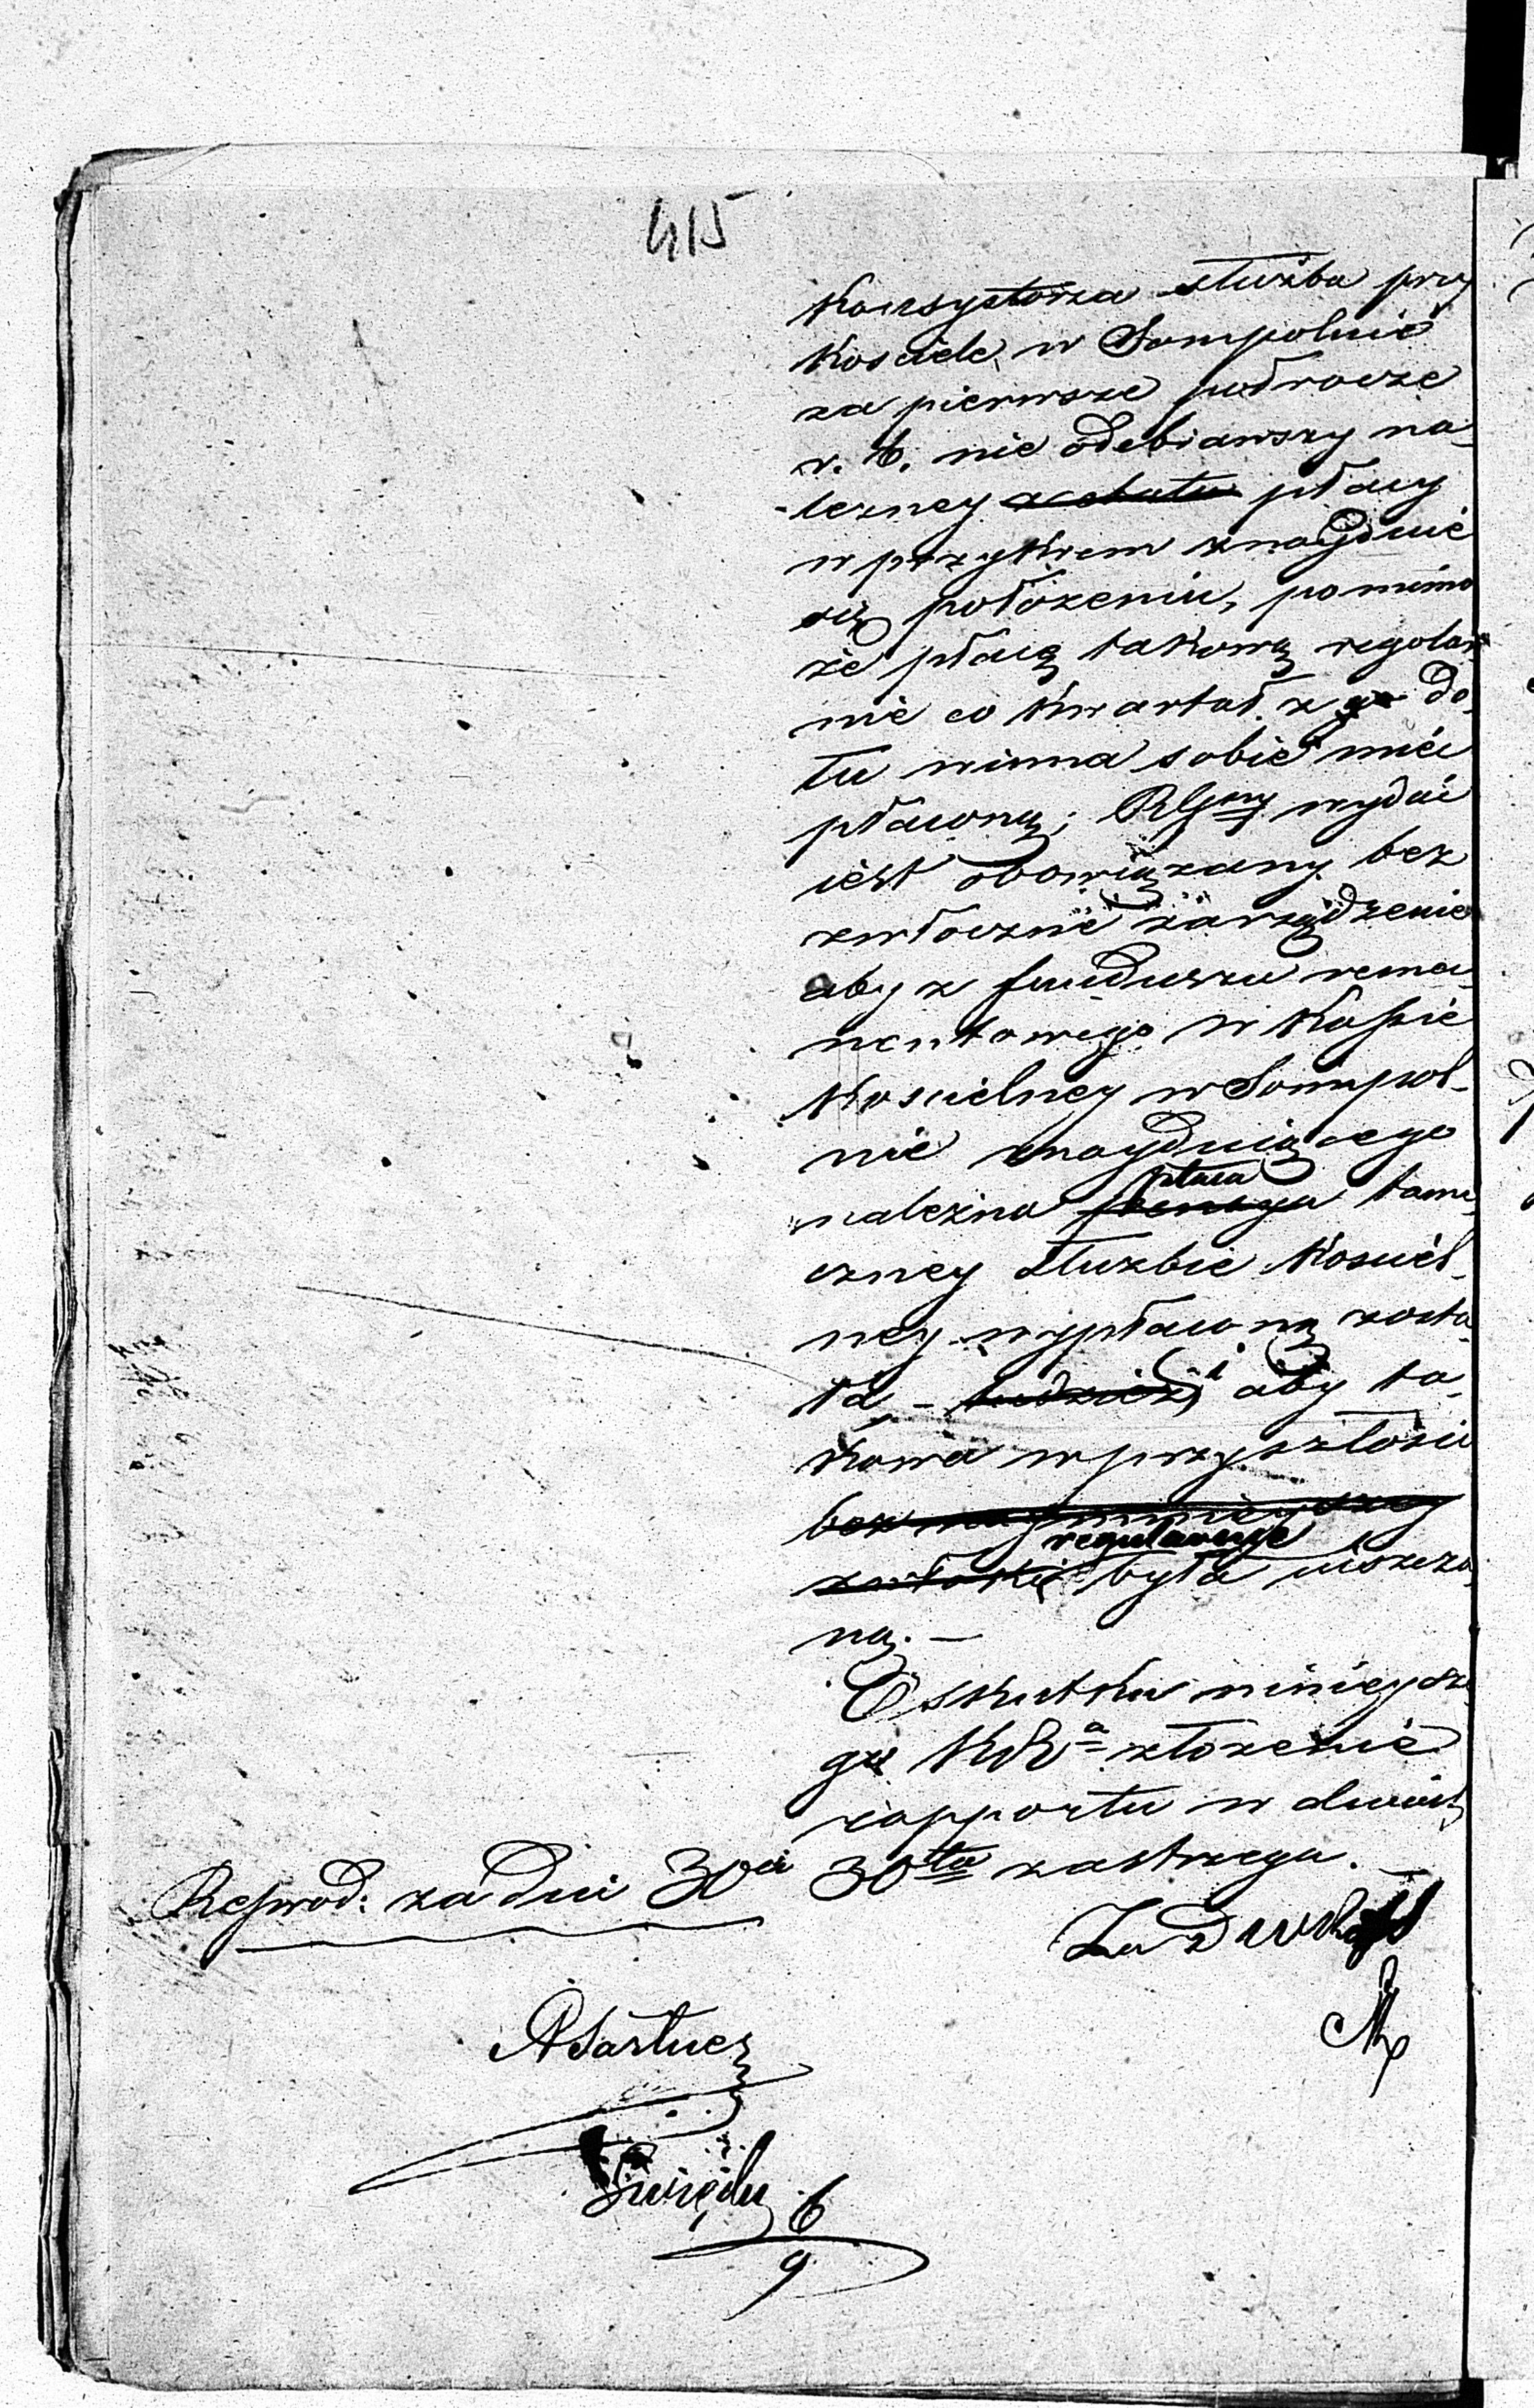 415
Konsystorza służba przy
Kosciele w Sompolnie
za pierwsze półrocze
r. b. nie odebrawszy na-
-lezney płacy
w przykrem znayduie
się położeniu, pomimo
że płacę takową regolar
nie co kwartał z do
łu winna sobie mieć
płaconą; RGny wydać
iest obowiązany bez
zwłoczne zarządzenie
aby z funduszu rema
nentowego w Kassie
Kościelney w Sompol-
nie znayduiącego
płaca
należna pensya tame
czney służbie Kościel-
ney wypłaconą zosta
ła, - tudzież, i aby ta-
kowa w przyszłości
bez naymnieyszey
regularnye
zwłoki była uiszczo
ną. -
O skutku ninieysze
go złożenie
rapportu w dniach
30tu zastrzega. -
Reprod: za dni 30ci